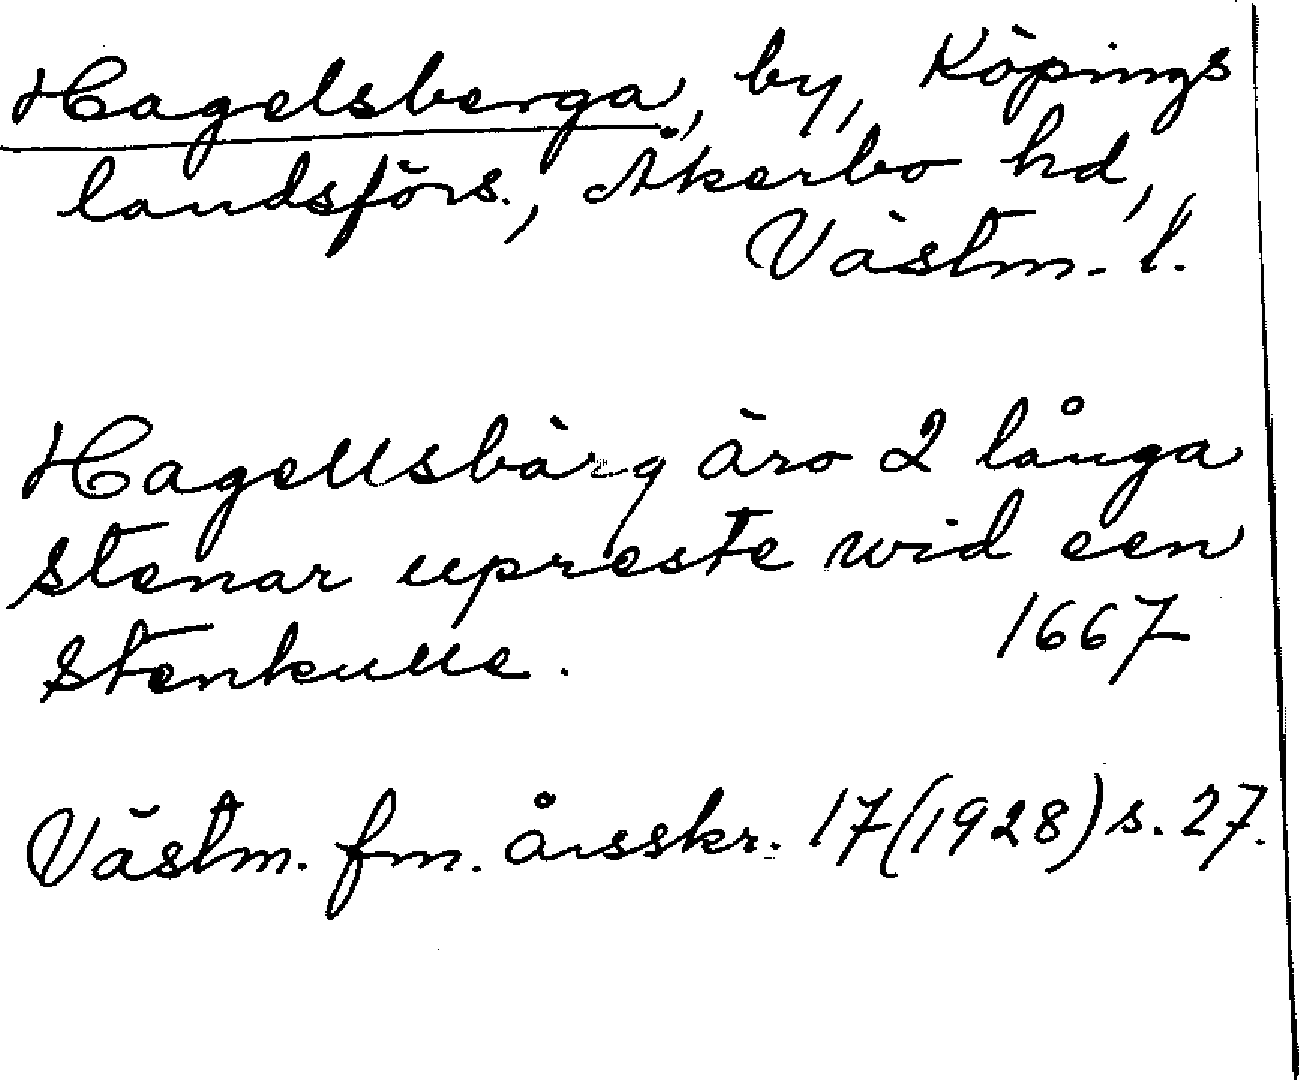 Hagelsberga, by, Köpings
landsförs., Åkerbo hd,
Västm. l.
Hagellsbärg äro 2 långa
stenar upreste wid een
stenkulle. 1667
Västm. fm. årsskr. 17 (1928) s. 27.